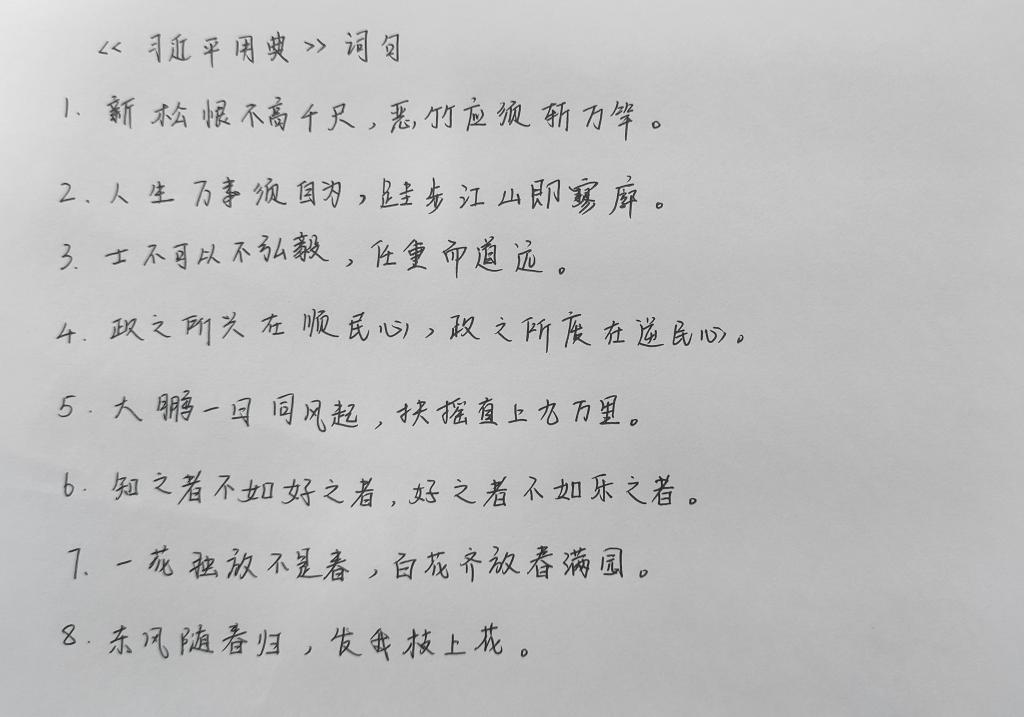 <<习近平用典>>词句
1. 新松恨不高千尺,恶竹应须斩万竿。
2. 人生万事须自为,跬步江山即寥廓。
3. 士不可以不弘毅,任重而道远。
4. 政之所兴在顺民心,政之所废在逆民心。
5. 大鹏一日同风起,扶摇直上九万里。
6. 知之者不如好之者,好之者不如乐之者。
7. 一花独放不是春,百花齐放春满园。
8. 东风随春归,发我枝上花。